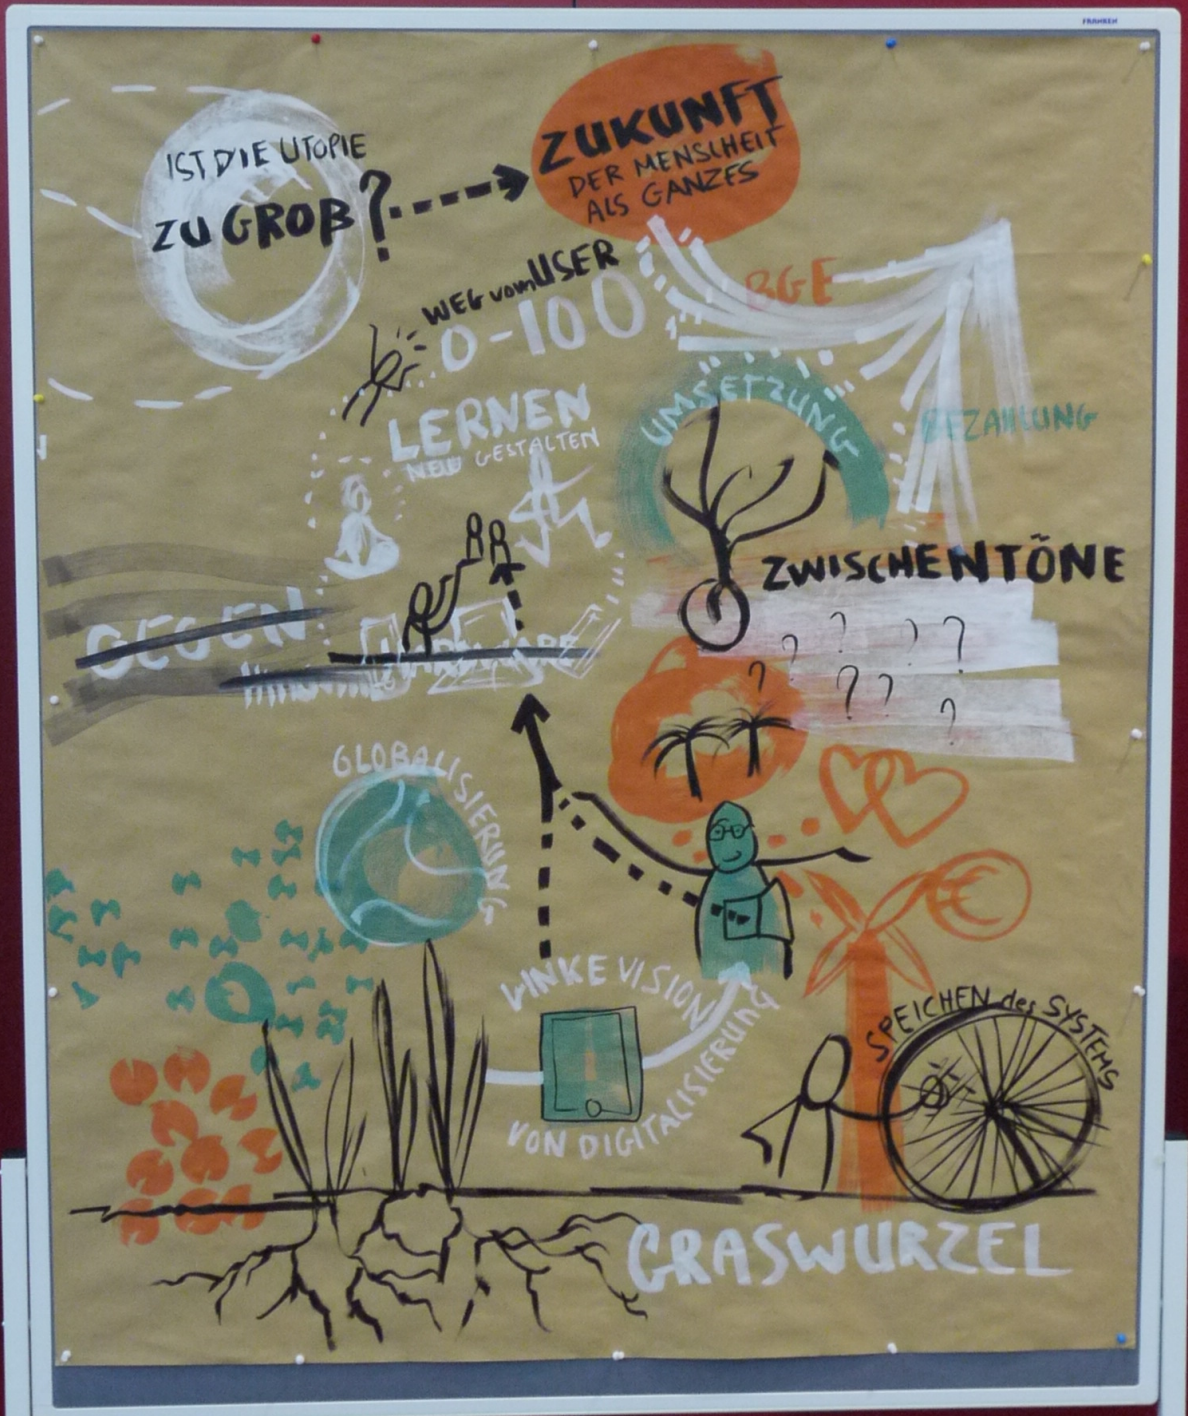 FRANKEN
IST DIE UTOPIE
ZU GROß?
ZUKUNFT
DER MENSCHEIT
ALS GANZES
WEG vom USER
0-100
BGE
LERNEN
NEU GESTALTEN
UMSETZUNG
BEZAHLUNG
ZWISCHENTÖNE
? ? ? ?
? ? ? ?
GEGEN
HARDWARE
GLOBALISIERUNG
€
LINKE VISION
VON DIGITALISIERUNG
SPEICHEN des SYSTEMS
GRASWURZEL